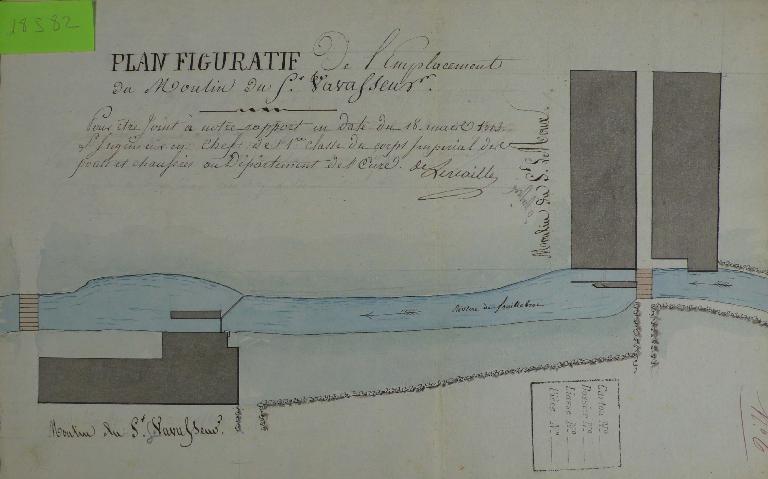 18382
PLAN FIGURATIF De l'Emplacement
du Moulin du Sr. Vavasseur.
Pour être Joint à notre rapport en date du 18 mars 1813.
L'Ingénieur en Chef de 1ere Classe du corps Impérial des
ponts et chaussées au Département de l'Eure.
Moulin du Sr.
Rivière de
Moulin du Sr. Vavasseur.
Carton No.
Dossier No.
Liasse No.
Pièce No.
No. 6